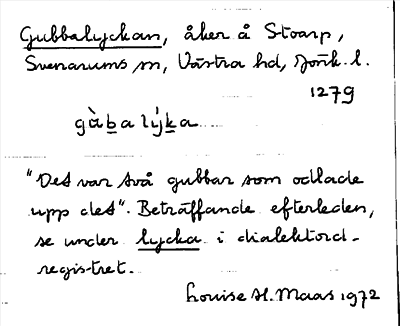 Gubbalyckan, åker å Stoarp,
Svenarums sn, Västra hd, Jönk. l.
1279
gàb̲a lýk̲a
"Det var två gubbar som odlade
upp det". Beträffande efterleden,
se under lycka i dialektord-
registret.
Louise H. Maas 1972